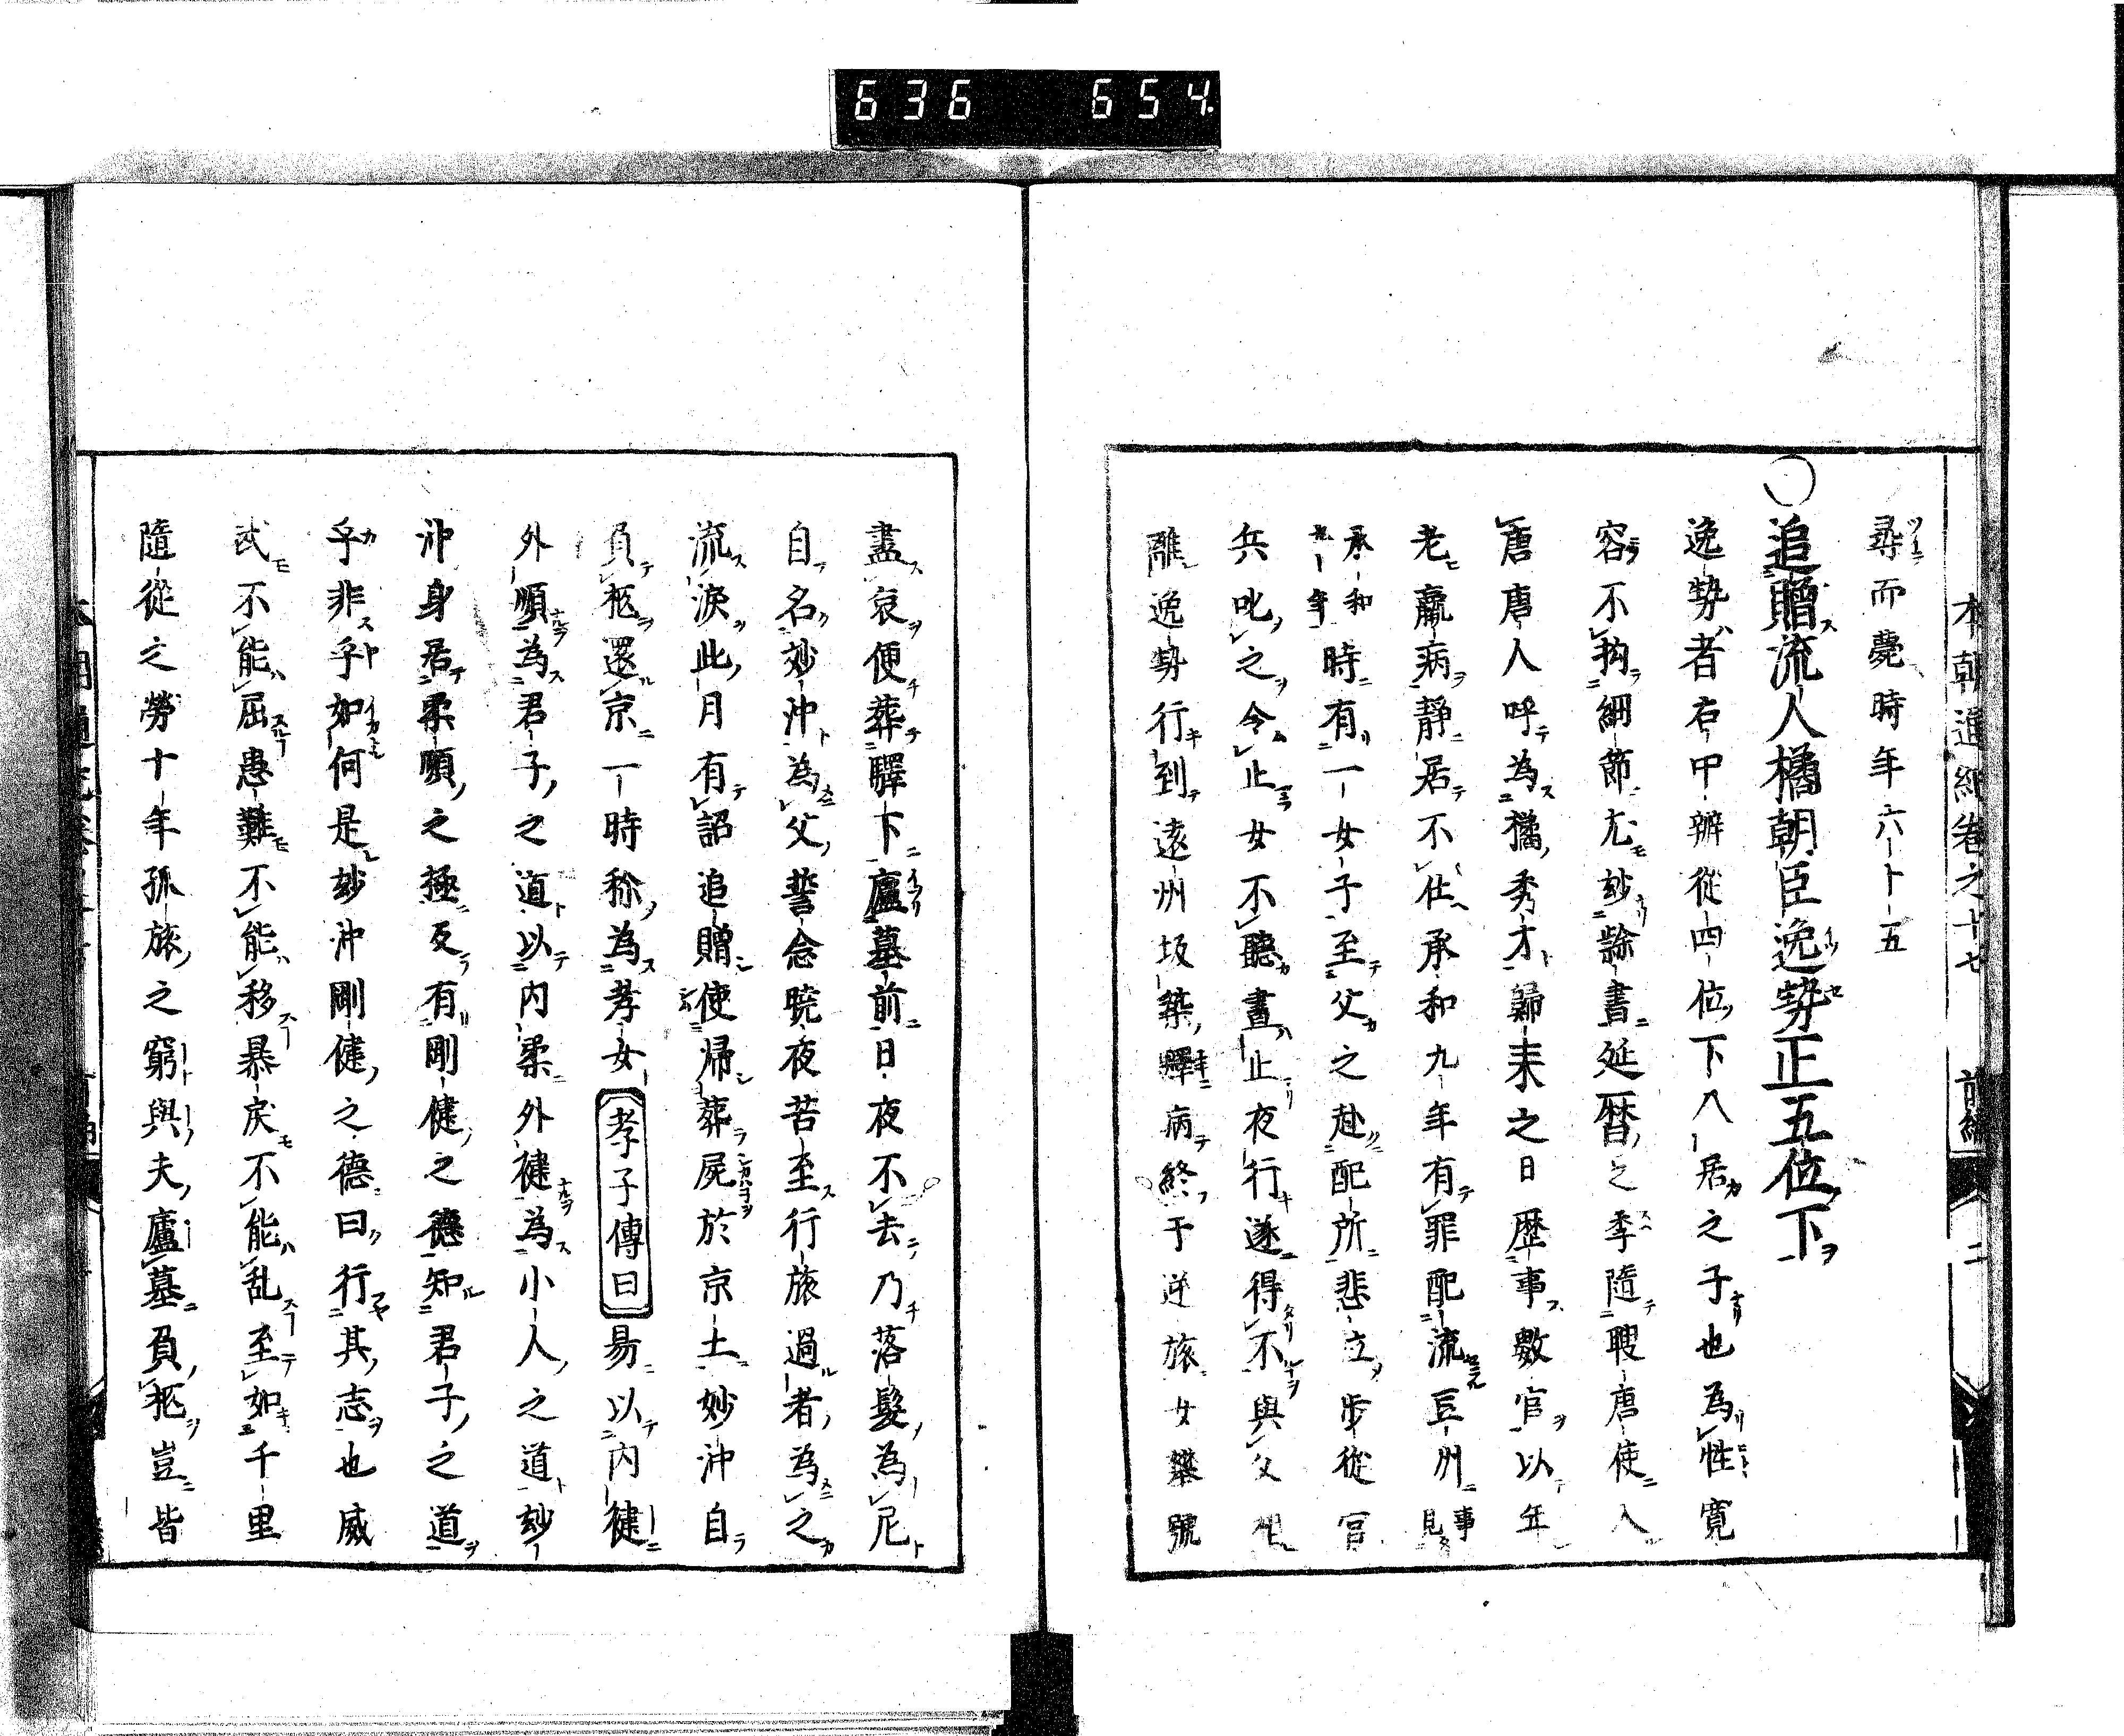 636 654
本朝通紀卷之十七 前編 二
尋而薨時年六十五
○追贈流人橘朝臣逸勢正五位下
逸勢者右中辨從四位下入居之子也為性寛
容不拘細節尤玅隸書延暦之季隨聘唐使入
唐唐人呼為橘秀才歸来之日歴事數官以年
老羸病静居不仕承和九年有罪配流豆州事見
承和九年時有一女子至父之赴配所悲泣歩從官
兵叱之令止女不聽晝止夜行遂得不與父相
離逸勢行到遠州坂築驛病終于逆旅女攀號
盡哀便葬驛下廬墓前日夜不去乃落髮為尼
自名妙沖為父誓念暁夜苦至行旅過者為之
流涙此月有詔追贈使帰葬屍於京土妙沖自
負柩還京一時称為孝女孝子傳曰易以内健
外順為君子之道以内柔外健為小人之道玅
沖身居柔順之極反有剛健之德知君子之道
乎非乎如何是玅沖剛健之德曰行其志也威
武不能屈患難不能移暴戻不能乱至如千里
隨從之勞十年孤旅之窮與夫廬墓負柩豈皆